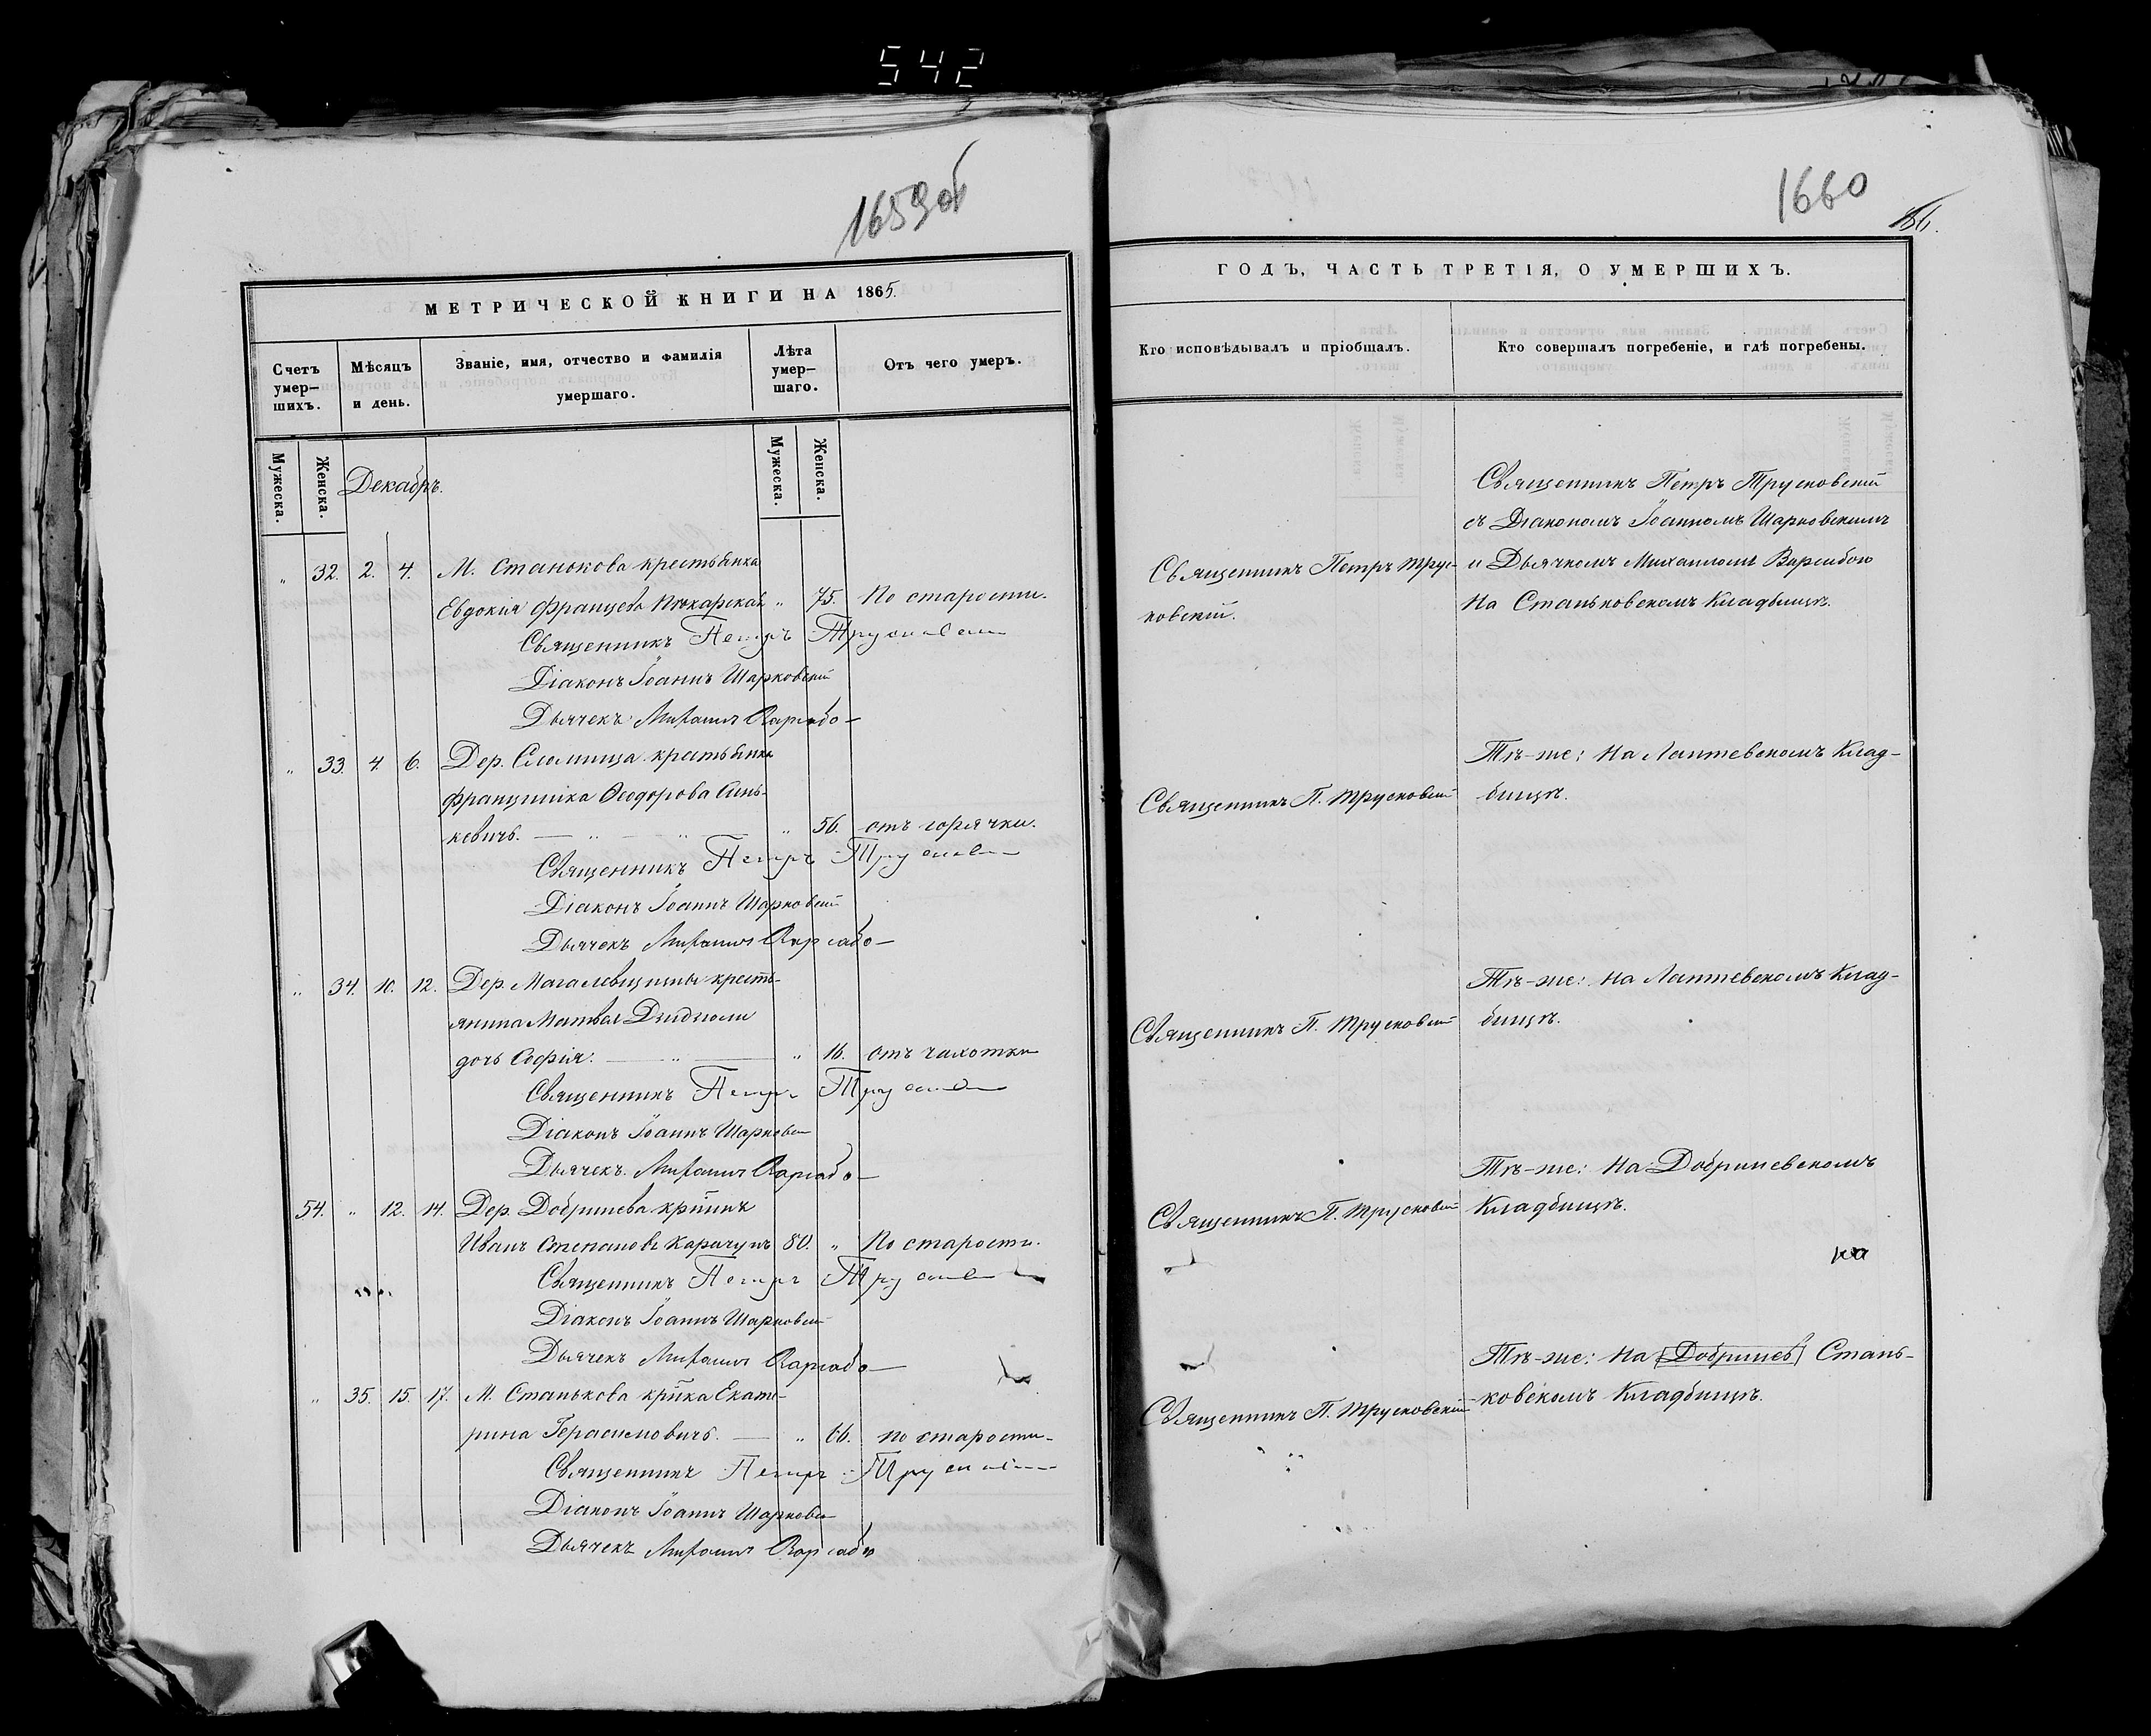 542
1659об
МЕТРИЧЕСКОЙ КНИГИ НА 1865.
Счетъ умер-шихъ.
Мѣсяцъ и день.
Званіе, имя, отчество и фамилія умершаго.
Лѣта умер-шаго.
Отъ чего умеръ.
Мужеска.
Женска.
Мужеска.
Женска.
Декабрь.
" 32. 2. 4. М. Станькова крестьянка
Евдокія Францева " 75. По старости.
Священникъ Петръ Трусковскій
Діаконъ Іоаннъ Шарковскій
Дьячекъ Михаилъ
" 33. 4. 6. Дер. крестьянка
Францишка Ѳеодорова Синь-
кевичъ. — " — " " 56. отъ горячки.
Священникъ Петръ Трусковскій
Діаконъ Іоаннъ Шарковскій
Дьячекъ Михаилъ
" 34. 10. 12. Дер. кресть-
янина Матвея
дочь Софія. — " — " 16. отъ чахотки
Священникъ Петръ Трусковскій
Діаконъ Іоаннъ Шарковскій
Дьячекъ Михаилъ
54. " 12. 14. Дер. Добринева кр̃нинъ
Иванъ Степановъ Карачунъ 80. " По старости.
Священникъ Петръ Трусковскій
Діаконъ Іоаннъ Шарковскій
Дьячекъ Михаилъ
" 35. 15. 17. М. Станькова кр̃нка Екате-
рина Герасимовичъ. — " 66. по старости.
Священникъ Петръ Трусковскій
Діаконъ Іоаннъ Шарковскій
Дьячекъ Михаилъ
1660
186.
ГОДЪ, ЧАСТЬ ТРЕТІЯ, О УМЕРШИХЪ.
Кто исповѣдывалъ и пріобщалъ.
Кто совершалъ погребеніе, и гдѣ погребены.
Священникъ Петръ Трус-
ковскій.
Священникъ Петръ Трусковскій
съ Діакономъ Іоанномъ Шарковскимъ
и Дьячкомъ Михаиломъ
На Станьковскомъ Кладбищѣ.
Священникъ П. Трусковскій
Тѣ-же: На Лаптевскомъ Клад-
бищѣ.
Священникъ П. Трусковскій
Тѣ-же: На Лаптевскомъ Клад-
бищѣ.
Священникъ П. Трусковскій
Тѣ-же: На Добриневскомъ
Кладбищѣ.
на
Священникъ П. Трусковскій
Тѣ-же: На [Добринев] Стань-
ковскомъ Кладбищѣ.